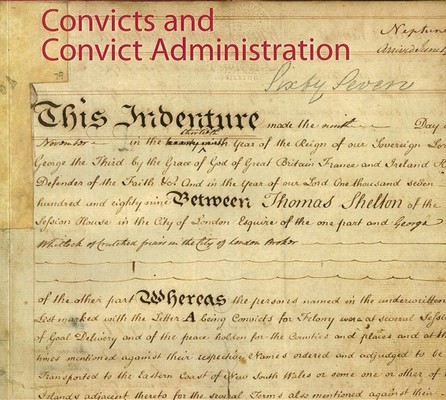 Convicts and
Convict Administration
Neptune
Arrived June
Sixty Seven
This Indenture made the ninth Day
November in the thirtieth Year of the Reign of our Sovereign Lor
George the Third by the Grace of God of Great Britain France and Ireland K
Defender of the Faith &c And in the Year of our Lord One thousand seven
hundred and eighty nine Between Thomas Shelton of the
Session House in the City of London Esquire of the one part and George
Whitlock of Crutched friars in the City of London Broker
of the other part Whereas the persons named in the underwritten
List marked with the Letter A being Convicts for Felony were at several Sessi
of Goal Delivery and of the peace holden for the Counties and places and at the
times mentioned against their respective Names ordered and adjudged to be
Transported to the Eastern Coast of New South Wales or some one or other of
Islands adjacent thereto for the several Terms also mentioned against their